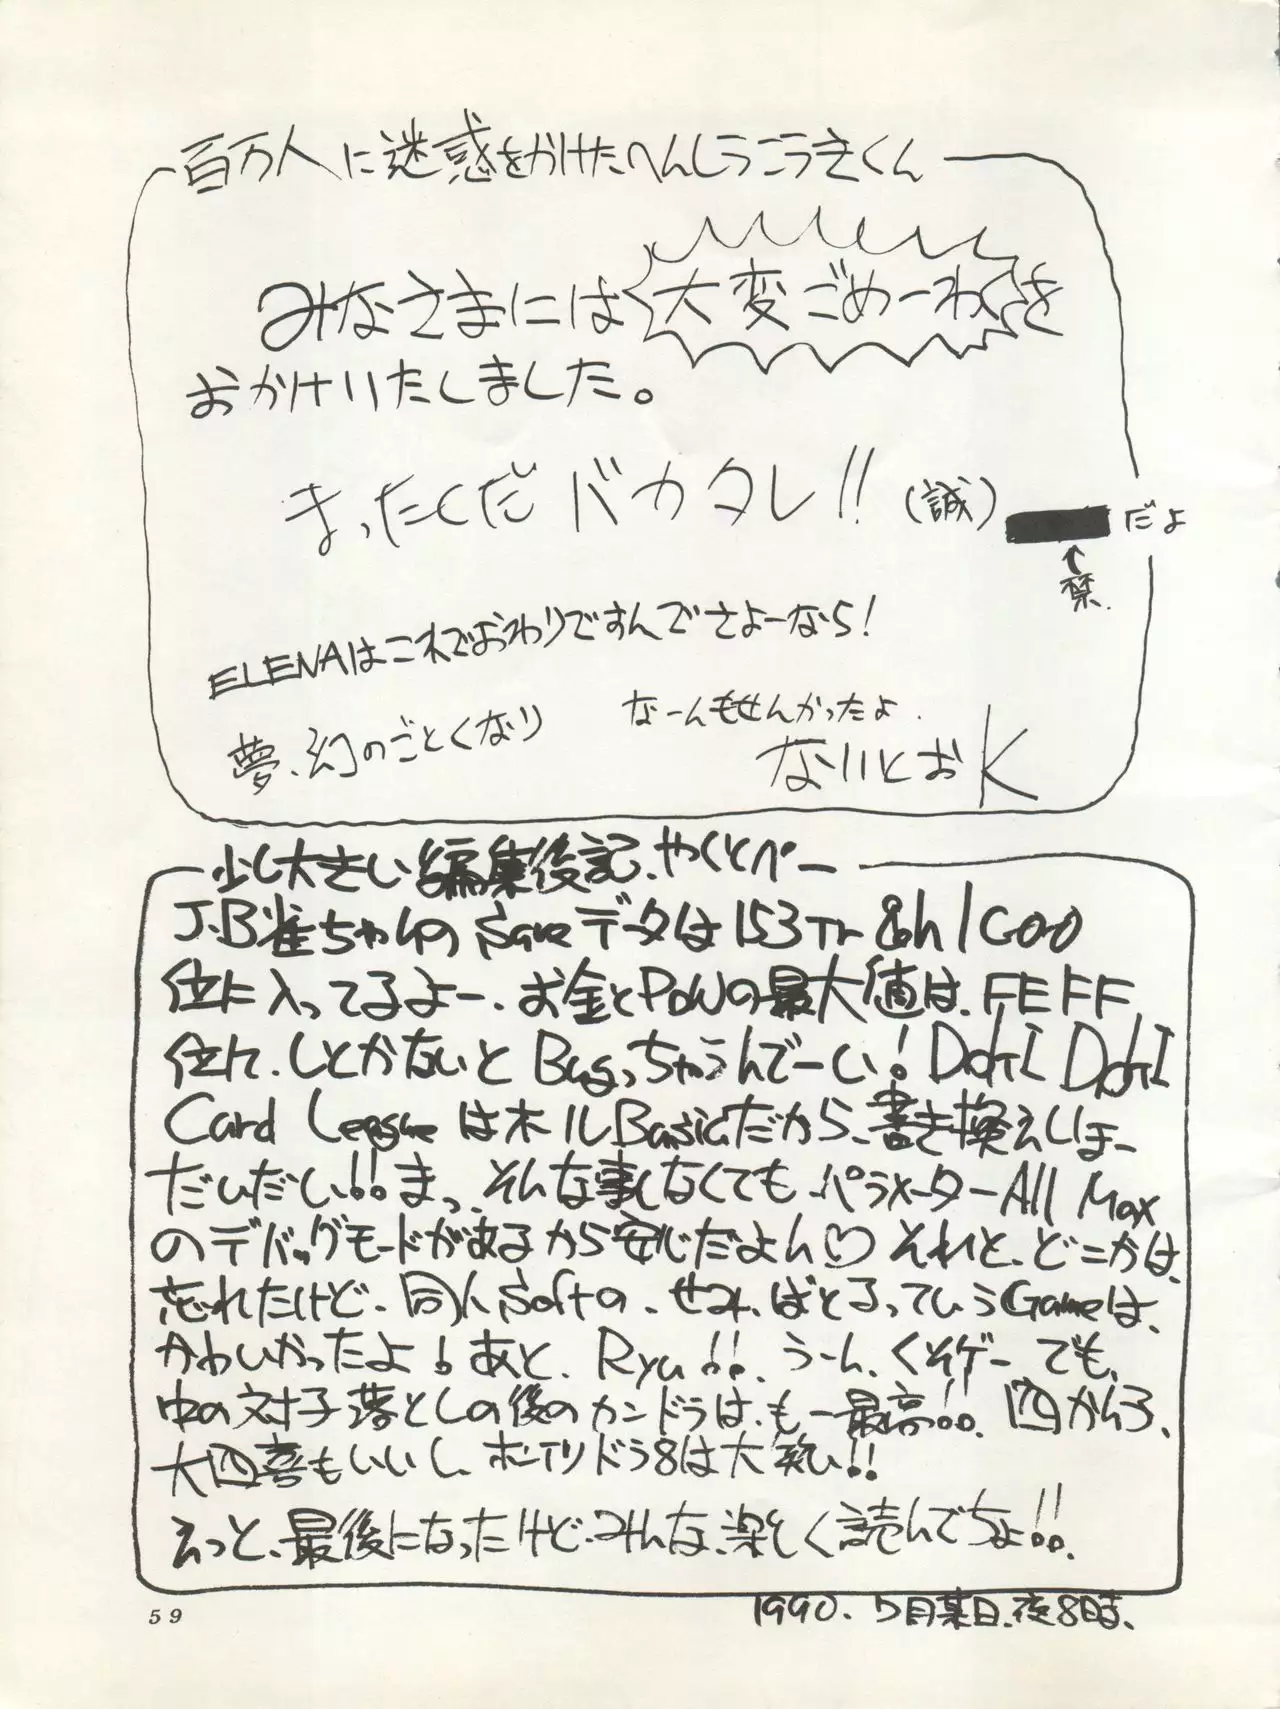 百万人に迷惑をかけたへんしうこうきくん
みなさまには大変ごめーわくを
おかけいたしました。
まったくだバカタレ!! (誠)
だよ
↑
禁.
ELENAはこれでおわりですんでさよーなら!
夢、幻のごとくなり
なーんもせんかったよ.
ないとおK
少し大きい編集後記、やくとぺー
J.B雀ちゃんのSaveデータは153Tr 8oh/C00
位に入ってるよー、お金とPOWの最大値は、FEFF
位に、しとかないとBugっちゃうんでーい!DokI DokI
Card LeagueはホルBasicだから、書き換えしほー
だいだい!!まっ、そんな事しなくてもパラメーターAll Max
のデバッグモードがあるから安心だよん♡それと、どこかは、
忘れたけど、同人Softの、せみ、ばとるっていうGameは、
かわいかったよ!あと、Ryu!!、うーん、くそゲーでも、
中の対子落としの後のカンドラは、もー最高!!、四かんつ、
大四喜もいいし、ホンイツドラ8は大笑い!!
えっと、最後になったけど、みんな、楽しく読んでちょ!!、
59
1990. 7月某日、夜8時、